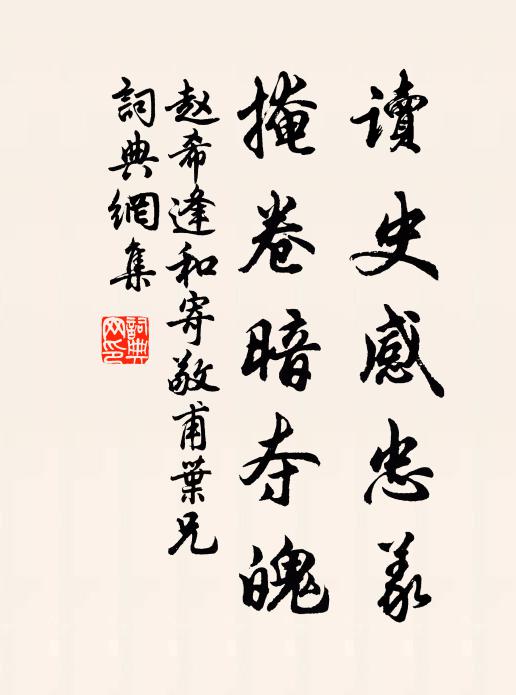 讀史感忠義
掩卷暗夺魄
赵希逢和寄敬甫葉兄
詞典網集
詞典网印